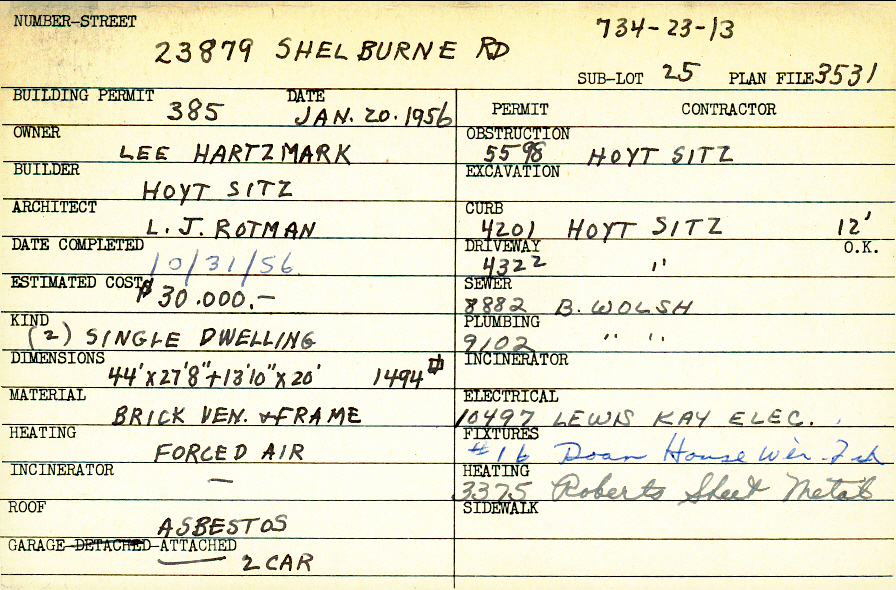 NUMBER-STREET
23879 SHELBURNE RD
734-23-13
SUB-LOT 25 PLAN FILE 3531
BUILDING PERMIT 385 DATE JAN. 20. 1956
PERMIT CONTRACTOR
OWNER LEE HARTZMARK
OBSTRUCTION 5598 HOYT SITZ
BUILDER HOYT SITZ
EXCAVATION
ARCHITECT L. J. ROTMAN
CURB 4201 HOYT SITZ 12'
DATE COMPLETED 10/31/56
DRIVEWAY 4322 " O.K.
ESTIMATED COST $30.000.-
SEWER 8882 B. WOLSH
KIND (2) SINGLE DWELLING
PLUMBING 9102 " "
DIMENSIONS 44'X27'8"+13'10"X20' 1494
INCINERATOR
MATERIAL BRICK VEN. & FRAME
ELECTRICAL 10497 LEWIS KAY ELEC.
HEATING FORCED AIR
FIXTURES #16 Doan House
INCINERATOR —
HEATING 3375 Roberts Sheet Metal
ROOF ASBESTOS
SIDEWALK
GARAGE-DETACHED-ATTACHED 2 CAR